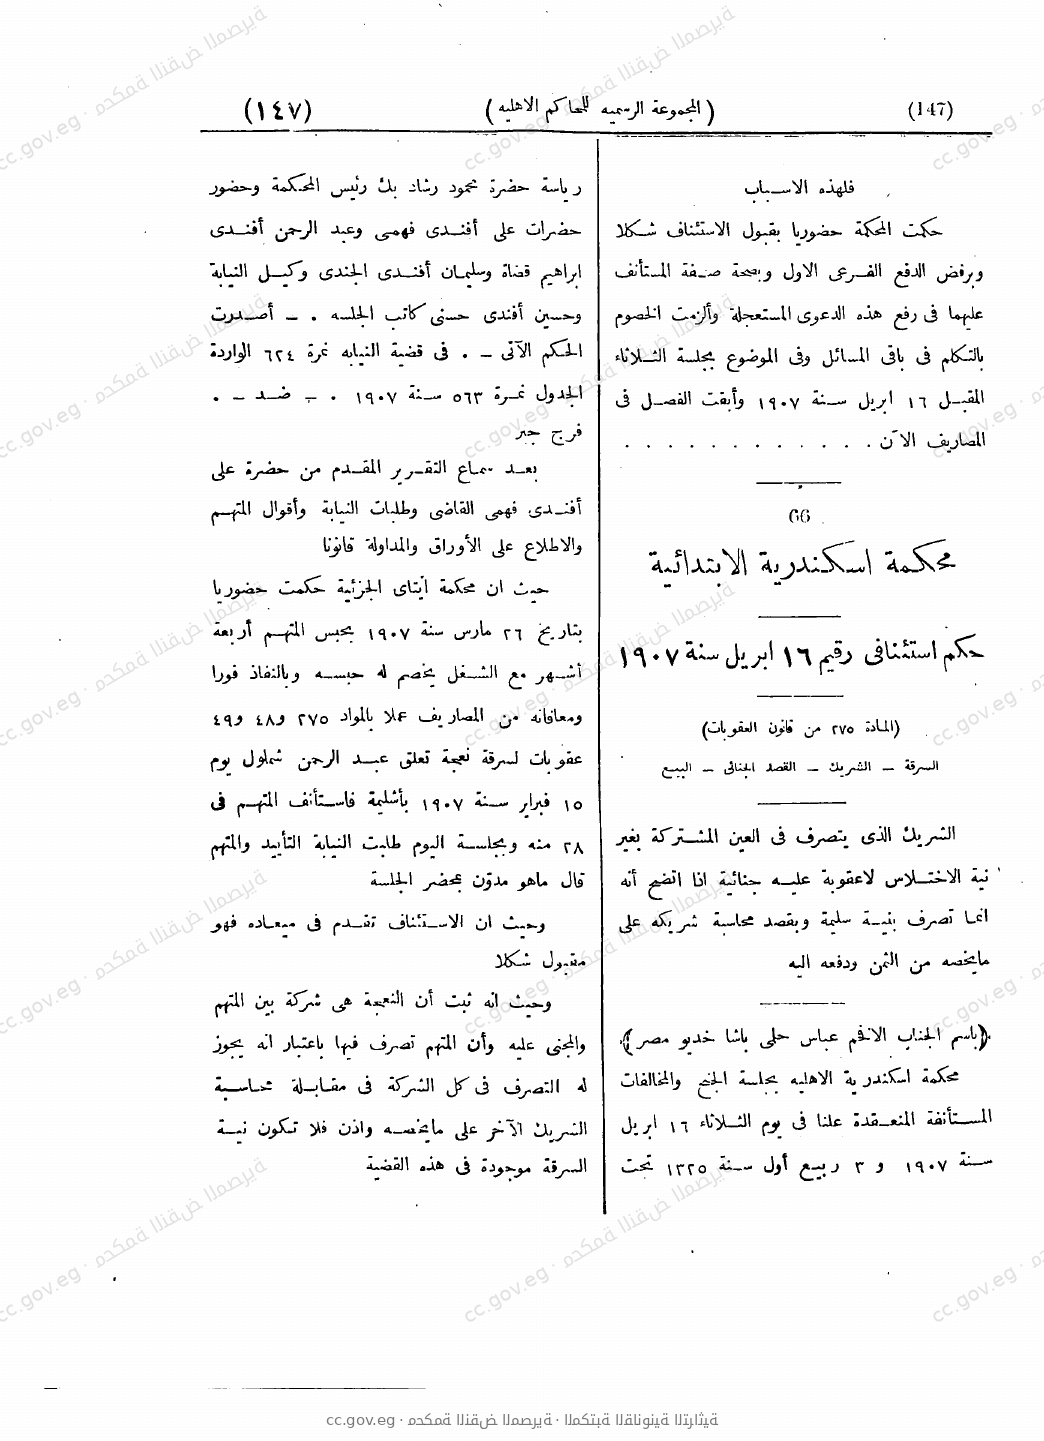 (147) (المجموعة الرسميه للمحاكم الاهليه) (١٤٧)
فلهذه الاسباب
حكمت المحكمة حضوريا بقبول الاستئناف شكلا
وبرفض الدفع الفرعى الاول وبصحة صفة المستأنف
عليهما فى رفع هذه الدعوى المستعجلة وألزمت الخصوم
بالتكلم فى باقى المسائل وفى الموضوع بجلسة الثلاثاء
المقبل ١٦ ابريل سنة ١٩٠٧ وأبقت الفصل فى
المصاريف الآن . . . . . . . . . . . .
66
محكمة اسكندرية الابتدائية
حكم استئنافى رقيم ١٦ ابريل سنة ١٩٠٧
(المادة ٢٧٥ من قانون العقوبات)
السرقة – الشريك – القصد الجنائى – البيع
الشريك الذى يتصرف فى العين المشتركة بغير
نية الاختلاس لاعقوبة عليه جنائية اذا اتضح أنه
انما تصرف بنية سليمة وبقصد محاسبة شريكه على
مايخصه من الثمن ودفعه اليه
(باسم الجناب الافخم عباس حلمى باشا خديو مصر)
محكمة اسكندرية الاهليه بجلسة الجنح والمخالفات
المستأنفة المنعقدة علنا فى يوم الثلاثاء ١٦ ابريل
سنة ١٩٠٧ و ٣ ربيع أول سنة ١٣٢٥ تحت
رياسة حضرة محمود رشاد بك رئيس المحكمة وحضور
حضرات على أفندى فهمى وعبد الرحمن أفندى
ابراهيم قضاة وسليمان أفندى الجندى وكيل النيابة
وحسين أفندى حسنى كاتب الجلسه . – أصدرت
الحكم الآتى – . فى قضية النيابه نمرة ٦٢٤ الواردة
الجدول نمرة ٥٦٣ سنة ١٩٠٧ . – ضد – .
فرج جبر
بعد سماع التقرير المقدم من حضرة على
أفندى فهمى القاضى وطلبات النيابة وأقوال المتهم
والاطلاع على الأوراق والمداولة قانونا
حيث ان محكمة ايتاى الجزئية حكمت حضوريا
بتاريخ ٢٦ مارس سنة ١٩٠٧ بحبس المتهم أربعة
أشهر مع الشغل يخصم له حبسه وبالنفاذ فورا
ومعافاته من المصاريف عملا بالمواد ٢٧٥ و٤٨ و٤٩
عقوبات لسرقة نعجة تعلق عبد الرحمن شملول يوم
١٥ فبراير سنة ١٩٠٧ بأشليمة فاستأنف المتهم فى
٢٨ منه وبجلسة اليوم طلبت النيابة التأييد والمتهم
قال ماهو مدوّن بمحضر الجلسة
وحيث ان الاستئناف تقدم فى ميعاده فهو
مقبول شكلا
وحيث انه ثبت أن النعجة هى شركة بين المتهم
والمجنى عليه وأن المتهم تصرف فيها باعتبار انه يجوز
له التصرف فى كل الشركة فى مقابلة محاسبة
الشريك الآخر على مايخصه واذن فلا تكون نية
السرقة موجودة فى هذه القضية
cc.gov.eg · محكمة النقض المصرية · المكتبة القانونية التراثية